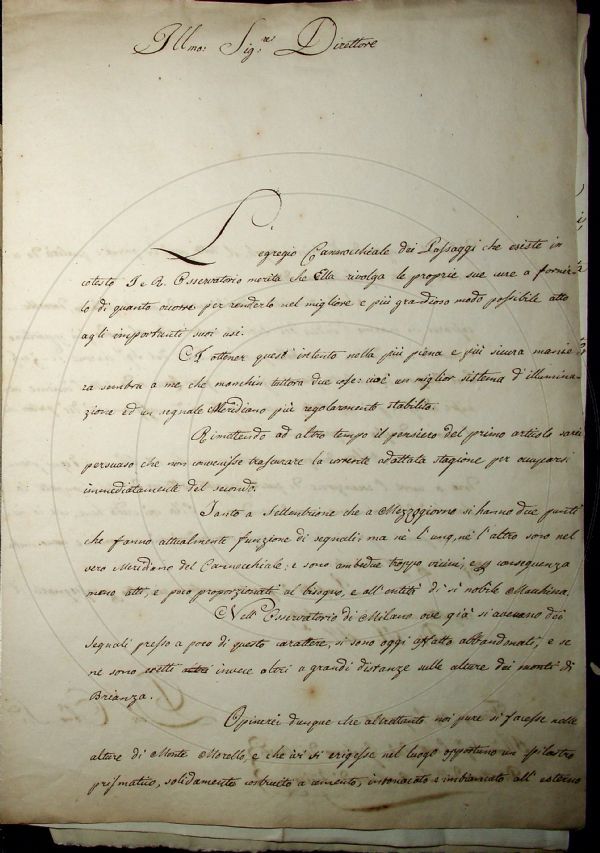 Illmo: Sig.re Direttore
L'egregio Cannocchiale dei Passaggi che esiste in
cotesto I e R. Osservatorio merita che Ella rivolga le proprie sue cure a fornir
lo di quanto occorre per renderlo nel migliore e più grandioso modo possibile atto
agli importanti suoi usi.
Ad ottener quest'intento nella più piena e più sicura manie
ra sembra a me che manchin tuttora due cose: cioè un miglior sistema d'illumina-
zione ed un segnale Meridiano più regolarmente stabilito.
Rimettendo ad altro tempo il pensiero del primo articolo sarei
persuaso che non convenisse trascurare la corrente adattata stagione per occuparsi
immediatamente del secondo.
Tanto a Settentrione che a Mezzogiorno si hanno due punti
che fanno attualmente funzione di segnali; ma nè l'uno, nè l'altro sono nel
vero Meridiano del Cannocchiale: e sono ambedue troppo vicini, e conseguenza
meno atti, e poco proporzionati al bisogno, e all'entità di sì nobile Macchina.
Nell'Osservatorio di Milano ove già si avevano dei
segnali presso a poco di questo carattere, si sono oggi affatto abbandonati, e se
ne sono eretti invece altri a grandi distanze sulle alture dei monti di
Brianza.
Opinerei dunque che altrettanto noi pure si facesse nelle
alture di Monte Morello, e che ivi si erigesse nel luogo opportuno un pilastro
prismatico, solidamente costruito a cemento, intonacato e imbiancato all'esterno